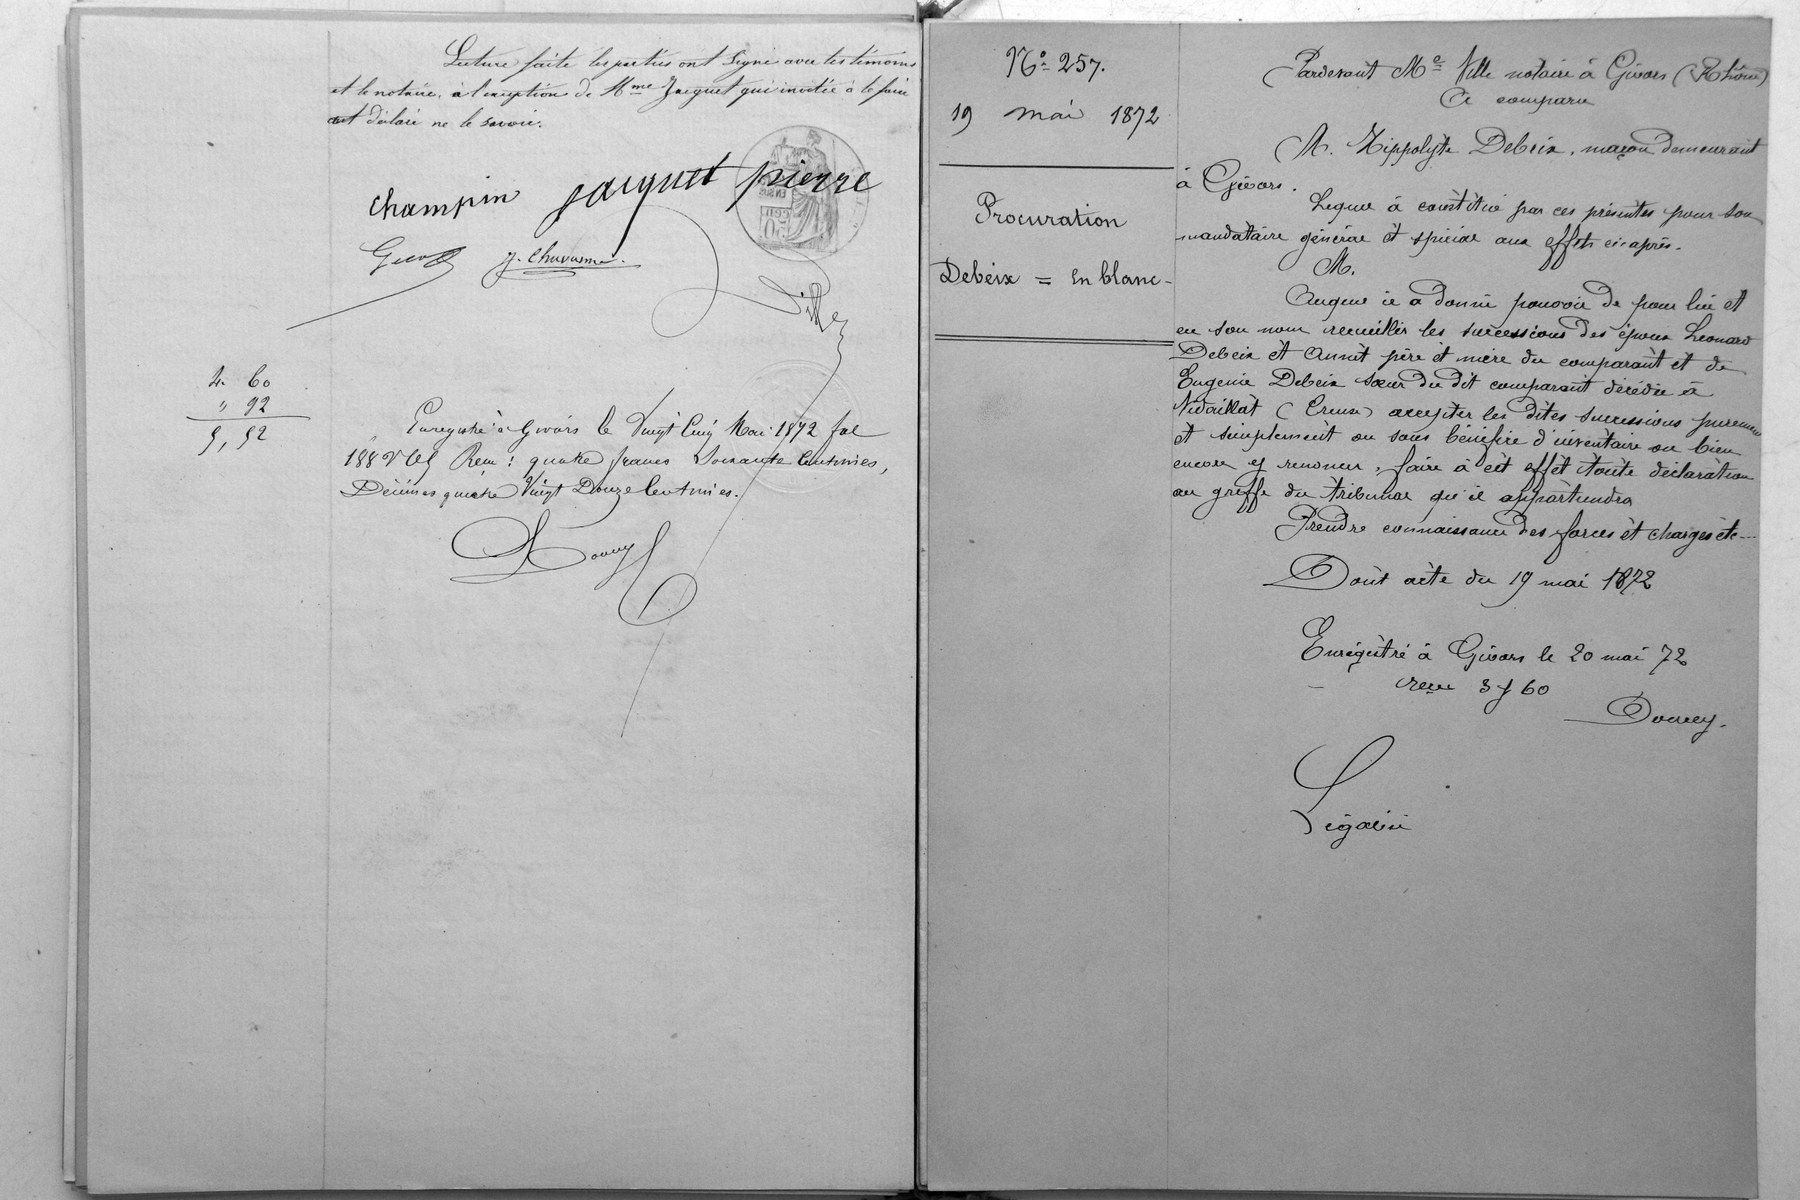 Lecture faite les parties ont signé avec les témoins
et le notaire, à l'exception de Mme Jacquet qui invitée à le faire
ont déclaré ne le savoir.
champin jacquet pierre
J. Chavanne
Ville
4. 60
" 92
5, 52
Enregistré à Givors le Vingt Cinq Mai 1872 fol
188 Reçu : quatre francs Soixante Centimes,
Décimes quatre Vingt Douze Centimes.
Douey
No 257.
19 mai 1872
Procuration
Debeix = En blanc -
Pardevant Me Ville notaire à Givors (Rhône)
a comparu
M. Hippolyte Debeix, maçon demeurant
à Givors.
Lequel à constitué par ces présentes pour son
mandataire général et spécial aux effets ci-après.
M.
Auquel il a donné pouvoir de pour lui et
en son nom recueillir les successions des époux Leonard
Debeix et Annêt père et mère du comparant et de
Eugenie Debeix sœur du dit comparant décédée à
(Creuse) accepter les dites successions purement
et simplement ou sous bénéfice d'inventaire ou bien
encore y renoncer, faire à cet effet toute déclaration
au greffe du tribunal qu'il appartiendra
Prendre connaissance des forces et charges etc---
Dont acte du 19 mai 1872
Enregistré à Givors le 20 mai 72
reçu 3 f 60
Douey.
Légalisé